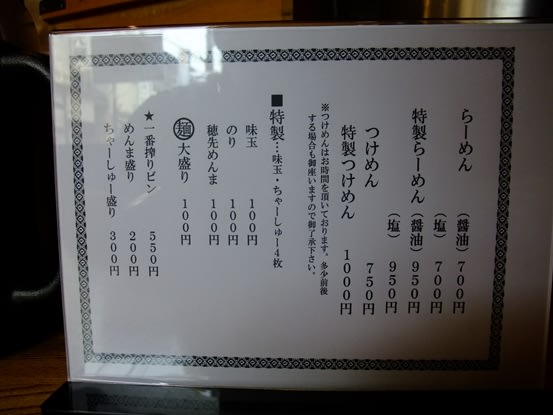 らーめん （醤油）７００円
（塩） ７００円
特製らーめん （醤油）９５０円
（塩） ９５０円
つけめん ７５０円
特製つけめん １０００円
※つけめんはお時間を頂いております。多少前後
する場合も御座いますので御了承下さい。
■特製…味玉・ちゃーしゅー４枚
味玉 １００円
のり １００円
穂先めんま １００円
㊋大盛り １００円
★一番搾りビン ５５０円
めんま盛り ２００円
ちゃーしゅー盛り ３００円